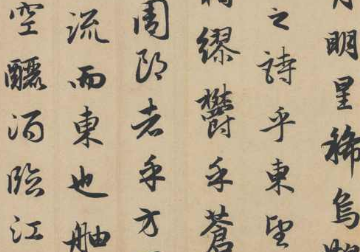 明星稀烏
之詩乎東望
繆鬱乎蒼
周郎者乎方
流而東也舳
空釃酒臨江